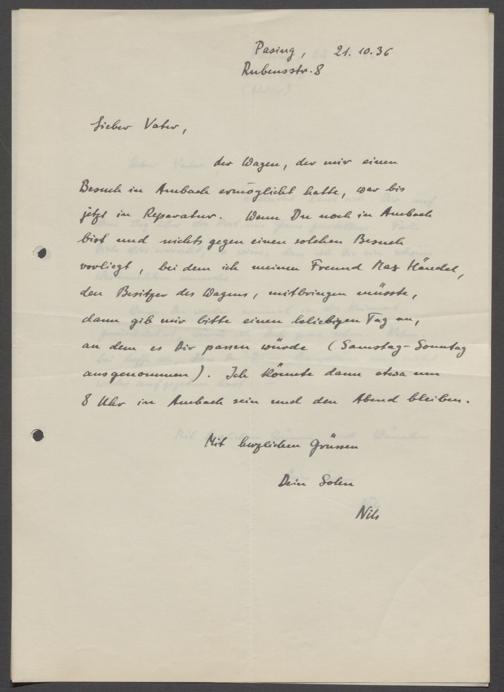 Pasing, 21.10.36
Rubensstr. 8
Lieber Vater,
der Wagen, der mir einen
Besuch in Ambach ermöglicht hätte, war bis
jetzt in Reparatur. Wenn Du noch in Ambach
bist und nichts gegen einen solchen Besuch
vorliegt, bei dem ich meinen Freund Max Händel,
den Besitzer des Wagens, mitbringen müsste,
dann gib mir bitte einen beliebigen Tag an,
an dem es Dir passen würde (Samstag-Sonntag
ausgenommen). Ich könnte dann etwa um
8 Uhr in Ambach sein und den Abend bleiben.
Mit herzlichen Grüssen
Dein Sohn
Nils